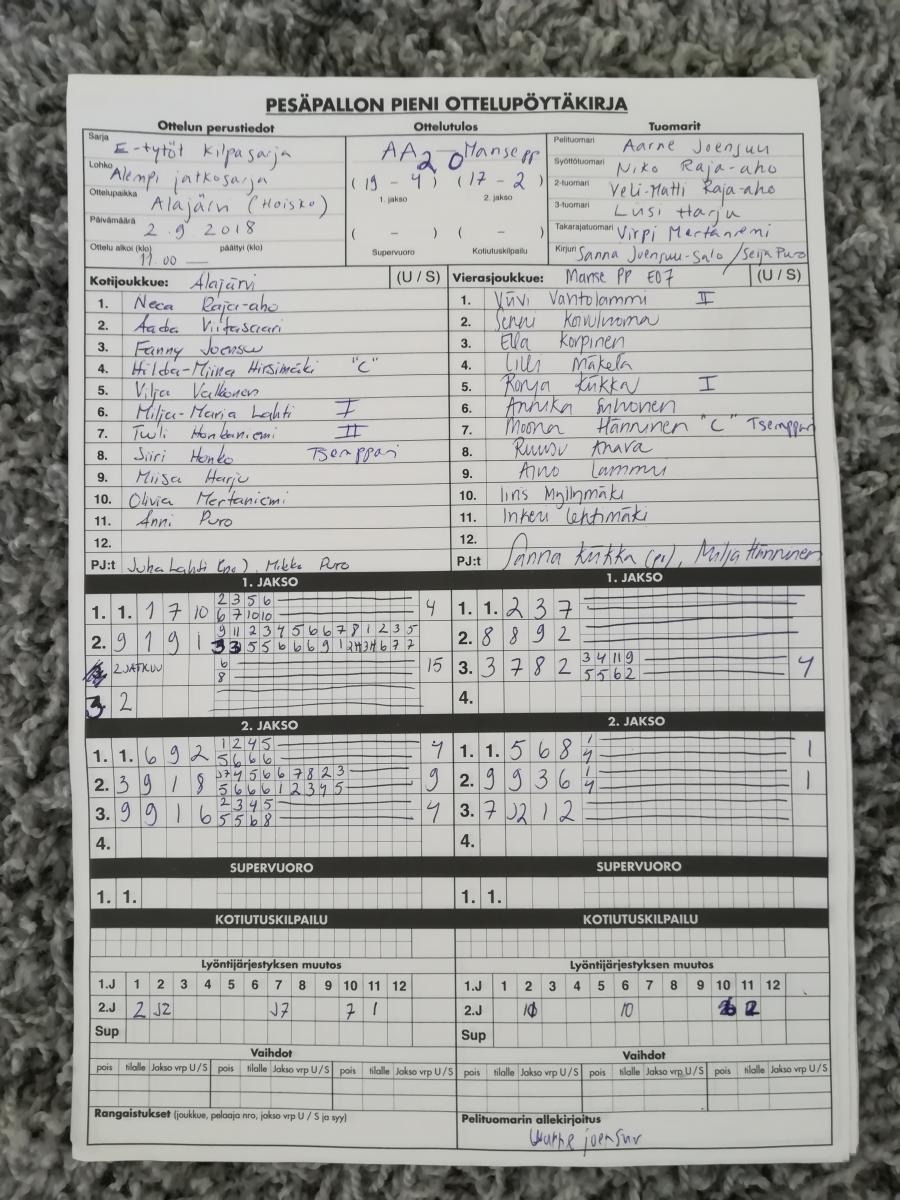 PESÄPALLON PIENI OTTELUPÖYTÄKIRJA
Ottelun perustiedot
Ottelutulos
Tuomarit
Sarja E-tytöt kilpasarja
Lohko Alempi jatkosarja
Ottelupaikka Alajärvi (Hoisko)
Päivämäärä 2.9 2018
Ottelu alkoi (klo) 11.00 päättyi (klo) —
AA 2 0 Manse pp
(19 - 4) (17 - 2)
1. jakso 2. jakso
( - ) ( - )
Supervuoro Kotiutuskilpailu
Pelituomari Aarne Joensuu
Syöttötuomari Niko Raja-aho
2-tuomari Veli-Matti Raja-aho
3-tuomari Lusi Harju
Takarajatuomari Virpi Mertaniemi
Kirjuri Sanna Joensuu-Salo / Seija Puro
Kotijoukkue: Alajärvi (U / S)
1. Neea Raja-aho
2. Aada Viitasaari
3. Fanny Joensuu
4. Hilda-Miina Hirsimäki "C"
5. Vilja Valkonen
6. Milja-Maria Lahti I
7. Tuuli Honkaniemi II
8. Siiri Honko Tsemppari
9. Miisa Harju
10. Olivia Mertaniemi
11. Anni Puro
12.
PJ:t Juha Lahti (pe), Mikko Puro
Vierasjoukkue: Manse PP E07 (U / S)
1. Viivi Vantolammi II
2. Senni Koivuluoma
3. Ella Korpinen
4. Lilli Mäkelä
5. Ronja Kiikka I
6. Annika Suhonen
7. Moona Hänninen "C" Tsemppari
8. Ruusu Ahava
9. Aino Lammu
10. Iiris Myllymäki
11. Inkeri Lehtimäki
12.
PJ:t Sanna Kiikka (pj), Milja Hänninen
1. JAKSO
1. 1. 1 7 10 2 3 5 6 4
6 7 10 10
2. 9 1 9 1 9 11 2 3 4 5 6 6 7 8 1 2 3 5
3 3 5 5 6 6 6 9 1 2 4 3 4 6 7 7
2. JATKUU 6 15
8
3. 2
1. JAKSO
1. 1. 2 3 7
2. 8 8 9 2
3. 3 7 8 2 3 4 11 9 4
5 5 6 2
4.
2. JAKSO
1. 1. 6 9 2 1 2 4 5 4
5 6 6 6
2. 3 9 1 8 J7 4 5 6 6 7 8 2 3 9
5 6 6 6 1 2 3 4 5
3. 9 9 1 6 2 3 4 5 4
5 5 6 8
4.
2. JAKSO
1. 1. 5 6 8 1 1
4
2. 9 9 3 6 1 1
4
3. 7 J2 1 2
4.
SUPERVUORO
1. 1.
SUPERVUORO
1. 1.
KOTIUTUSKILPAILU
KOTIUTUSKILPAILU
Lyöntijärjestyksen muutos
1.J 1 2 3 4 5 6 7 8 9 10 11 12
2.J 2 J2 J7 7 1
Sup
Lyöntijärjestyksen muutos
1.J 1 2 3 4 5 6 7 8 9 10 11 12
2.J 10 10 2
Sup
Vaihdot
pois tilalle Jakso vrp U / S pois tilalle Jakso vrp U / S pois tilalle Jakso vrp U / S
Vaihdot
pois tilalle Jakso vrp U / S pois tilalle Jakso vrp U / S pois tilalle Jakso vrp U / S
Rangaistukset (joukkue, pelaaja nro, jakso vrp U / S ja syy)
Pelituomarin allekirjoitus
Aarne Joensuu